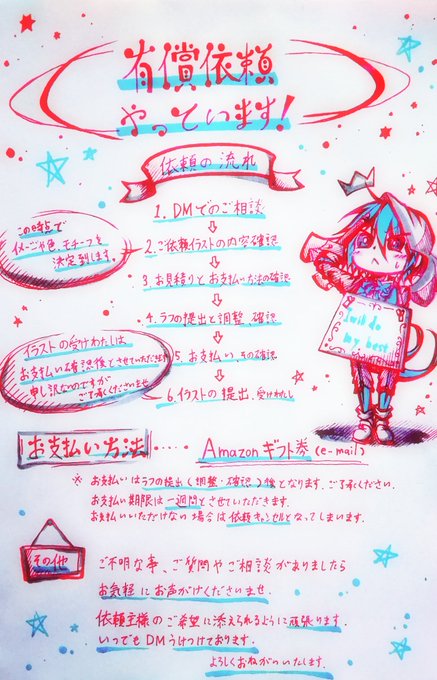 有償依頼
やっています!
依頼の流れ
1. DMでのご相談
この時点で
イメージや色、モチーフを
決定致します。
2.ご依頼イラストの内容確認
3.お見積りとお支払い方法の確認
4.ラフの提出と調整、確認
イラストの受けわたしは
お支払い確認後とさせていただきます
申し訳ないのですが
ご了承くださいませ
5.お支払い、その確認
6.イラストの提出、受けわたし
I will do
my best
お支払い方法 ‥‥ Amazonギフト券(e-mail)
※ お支払いはラフの提出(調整・確認)後となります。ご了承ください。
お支払い期限は一週間とさせていただきます。
お支払いいただけない場合は依頼キャンセルとなってしまいます。
その他
ご不明な事、ご質問やご相談がありましたら
お気軽にお声がけくださいませ
依頼主様のご希望に添えられるように頑張ります。
いつでもDMうけつけております。
よろしくおねがいいたします。